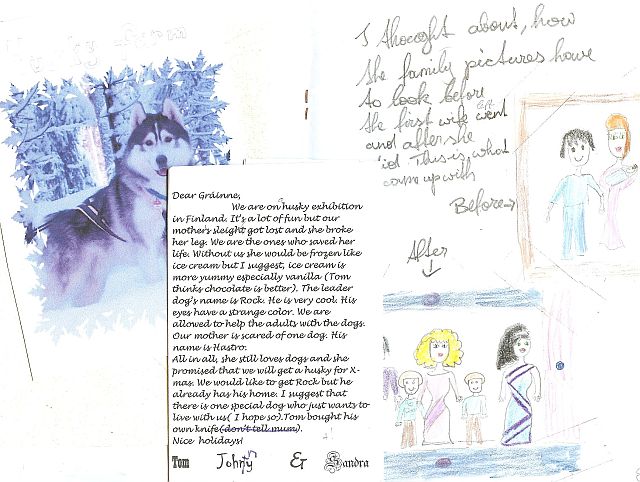 I thoought about, how
the family pictures have
to look before
the first wife went
and after she
This is what
came up with
Before→
After
Dear Gráinne,
We are on husky exhibition
in Finland. It's a lot of fun but our
mother's sleight got lost and she broke
her leg. We are the ones who saved her
life. Without us she would be frozen like
ice cream but I suggest, ice cream is
more yummy especially vanilla (Tom
thinks chocolate is better). The leader
dog's name is Rock. He is very cool. His
eyes have a strange color. We are
allowed to help the adults with the dogs.
Our mother is scared of one dog. His
name is Hastro.
All in all, she still loves dogs and she
promised that we will get a husky for X-
mas. We would like to get Rock but he
already has his home. I suggest that
there is one special dog who just wants to
live with us( I hope so).Tom bought his
own knife(don't tell mum).
Nice holidays!
Tom Johnny & Sandra